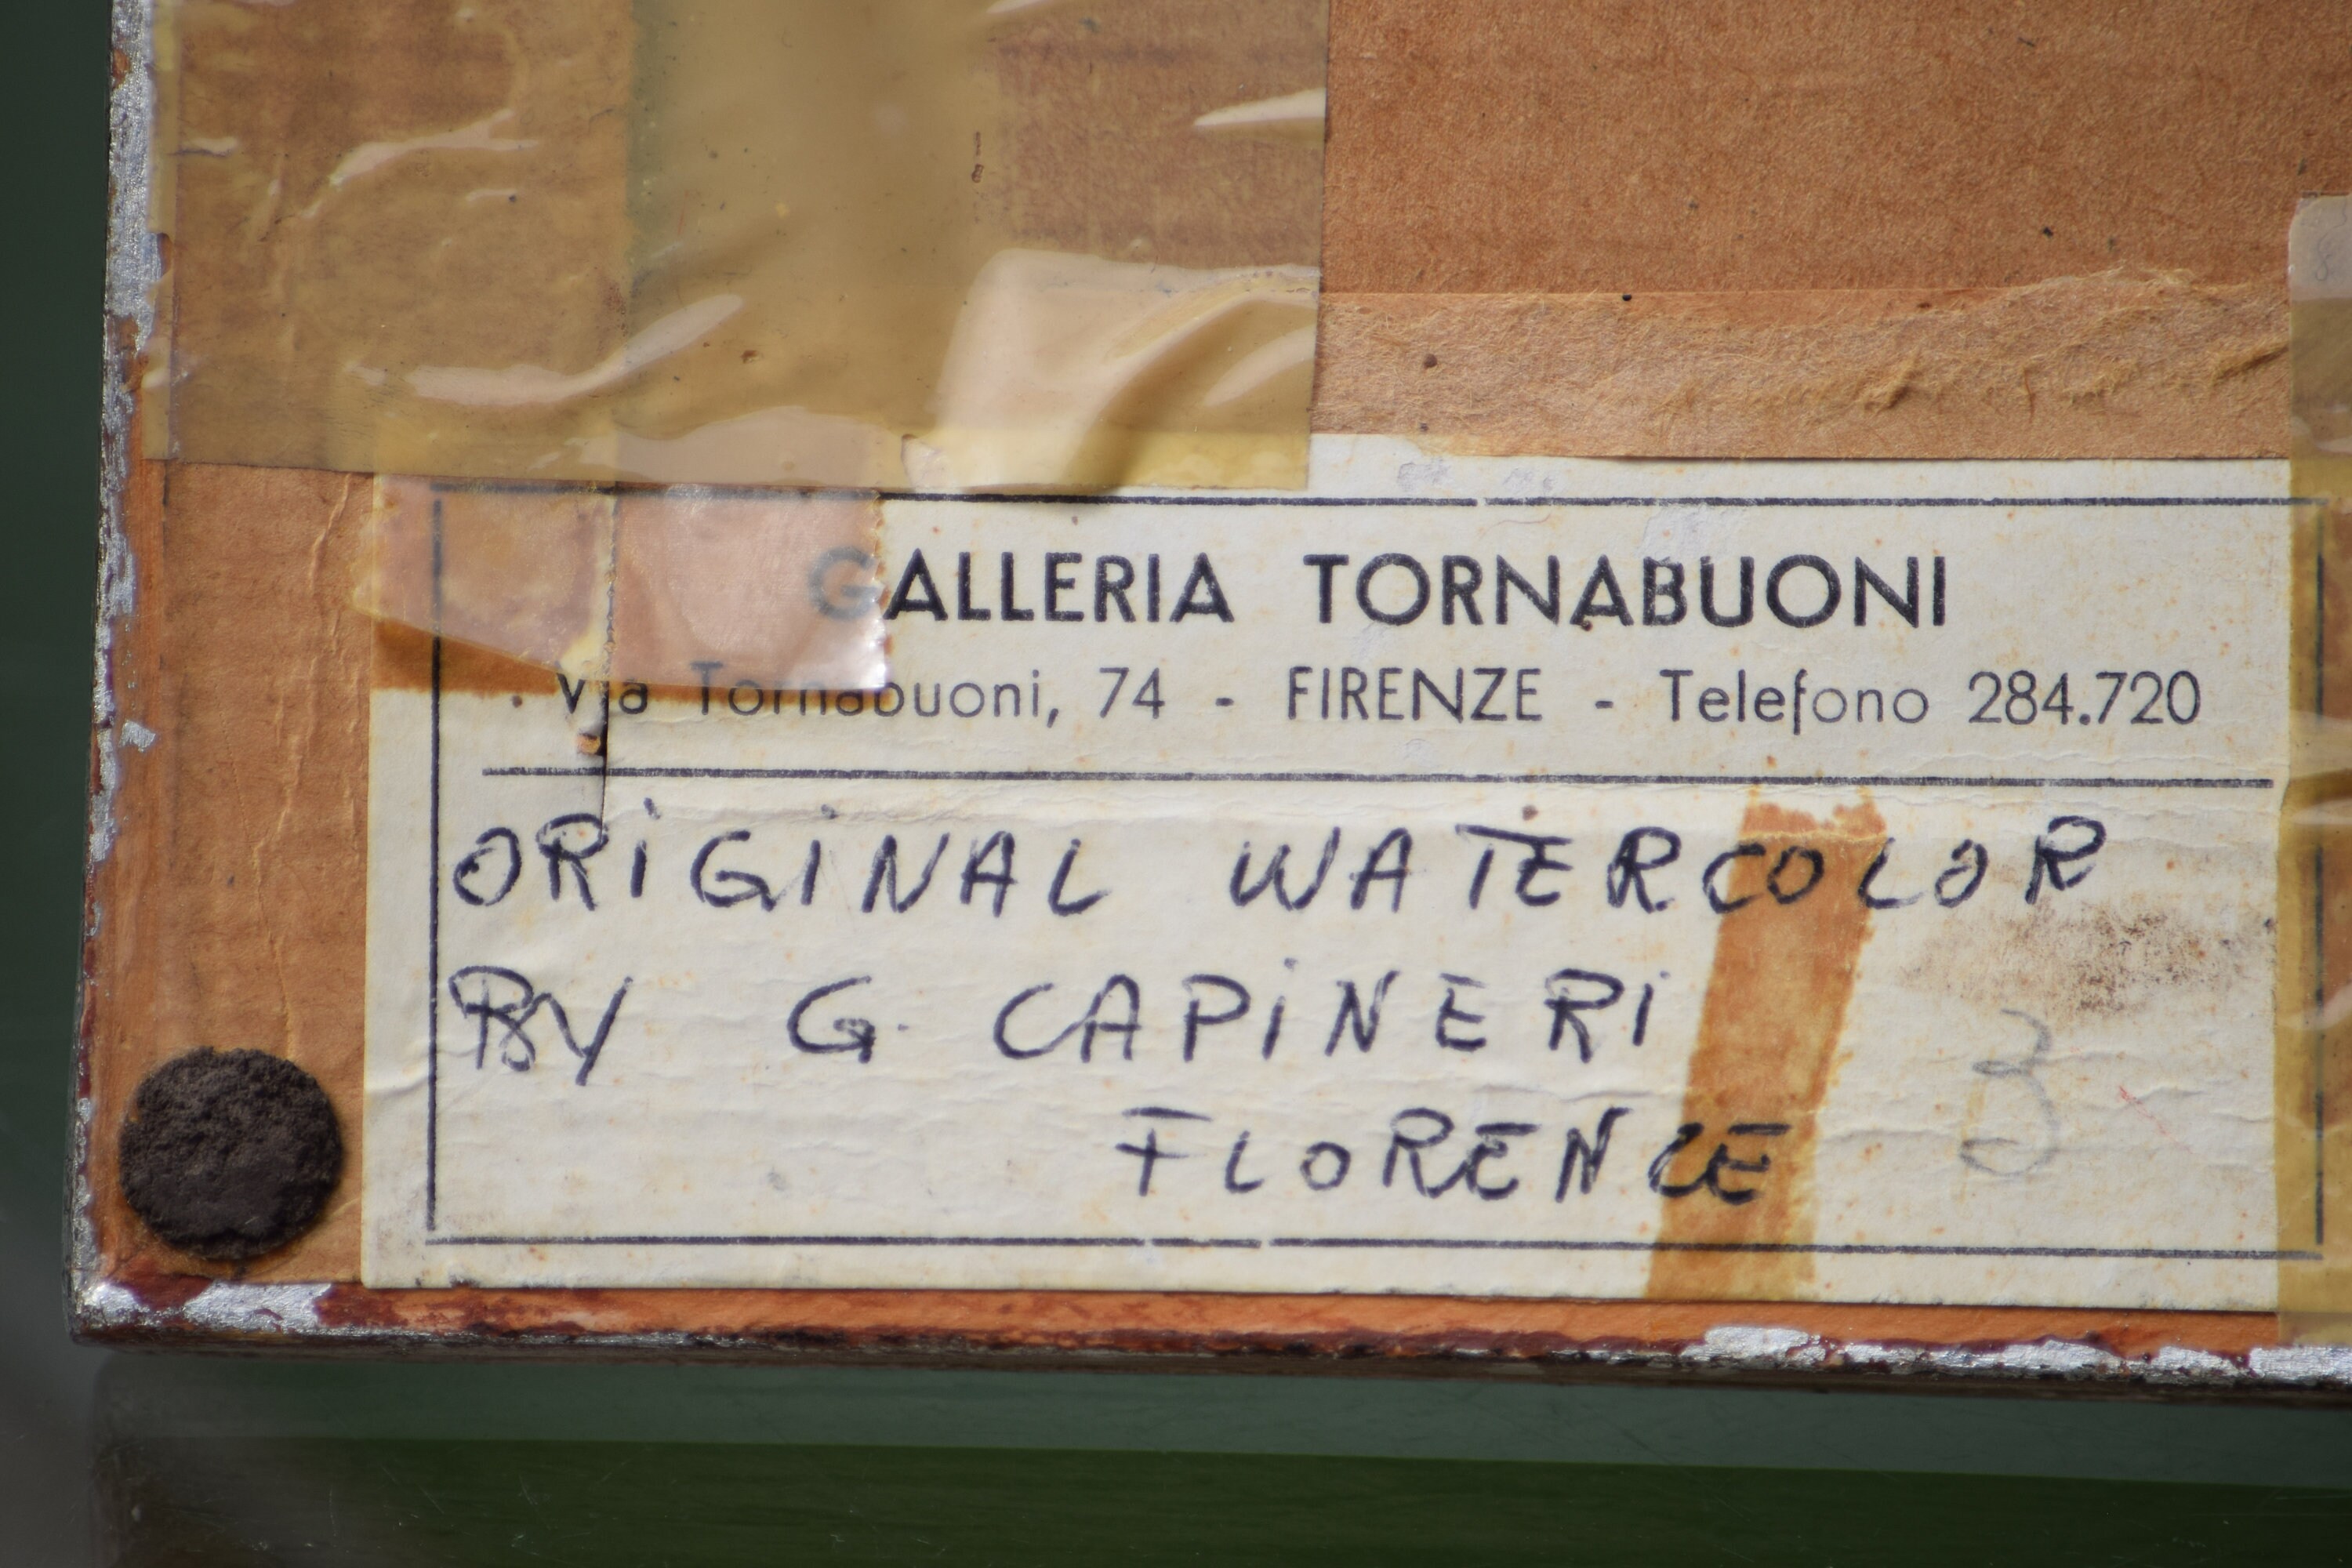 GALLERIA TORNABUONI
Via Tornabuoni, 74 - FIRENZE - Telefono 284.720
ORiGiNAL WATERCOLOR
BY G. CAPiNERi
FLORENCE
3